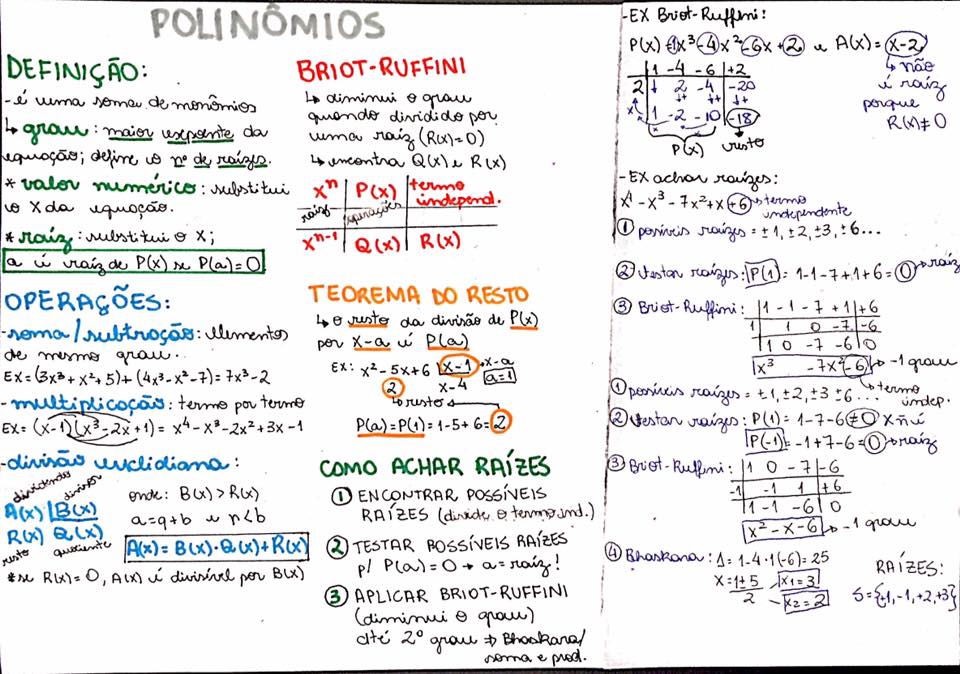 POLINÔMIOS
DEFINIÇÃO:
- é uma soma de monômios
↳ grau: maior expoente da
equação; define o nº de raízes.
* valor numérico: substitui
o X da equação.
* raiz: substitui o X;
a é raiz de P(x) se P(a)=0
OPERAÇÕES:
- soma/subtração: elementos
de mesmo grau.
EX = (3x³+x²+5)+(4x³-x²-7)=7x³-2
- multiplicação: termo por termo
EX= (x-1)(x³-2x+1) = x⁴-x³-2x²+3x-1
- divisão euclidiana:
dividendo divisor
A(x) B(x)
R(x) Q(x)
resto quociente
onde: B(x) > R(x)
a=q+b e r<b
A(x) = B(x)·Q(x)+R(x)
*se R(x)=0, A(x) é divisível por B(x)
BRIOT-RUFFINI
↳ diminui o grau
quando dividido por
uma raiz (R(x)=0)
↳ encontra Q(x) e R(x)
xⁿ P(x) termo independ.
raiz operações
xⁿ⁻¹ Q(x) R(x)
TEOREMA DO RESTO
↳ o resto da divisão de P(x)
por x-a é P(a)
EX: x²-5x+6 x-1 → x-a
2 x-4 a=1
↳ resto
P(a)=P(1)=1-5+6=2
COMO ACHAR RAÍZES
① ENCONTRAR POSSÍVEIS
RAÍZES (divide o termo ind.)
② TESTAR POSSÍVEIS RAÍZES
p/ P(a)=0 → a=raiz!
③ APLICAR BRIOT-RUFFINI
(diminui o grau)
até 2º grau ⇒ Bhaskara/
soma e prod.
- EX Briot-Ruffini:
P(x)=1x³-4x²-6x+2 e A(x)=x-2
↳ não
é raiz
porque
R(x)≠0
1 -4 -6 +2
2 ↓ 2 -4 -20
x 1 -2 -10 -18
P(x) resto
- EX achar raízes:
x⁴-x³-7x²+x+6 → termo
independente
① possíveis raízes = ±1, ±2, ±3, ±6...
② testar raízes: P(1) = 1-1-7+1+6 = 0 → raiz
③ Briot-Ruffini: 1 -1 -7 +1 +6
1 1 0 -7 -6
1 0 -7 -6 0
x³ -7x -6 → -1 grau
↳ termo
indep.
① possíveis raízes = ±1, ±2, ±3, ±6...
② testar raízes: P(1) = 1-7-6 ≠ 0 x ñ é
P(-1) = -1+7-6 = 0 → raiz
③ Briot-Ruffini: 1 0 -7 -6
-1 -1 1 +6
1 -1 -6 0
x²-x-6 → -1 grau
④ Bhaskara: Δ = 1-4·1(-6) = 25
x = 1±5 x₁=3
2 x₂=2
RAÍZES:
S={+1,-1,+2,+3}